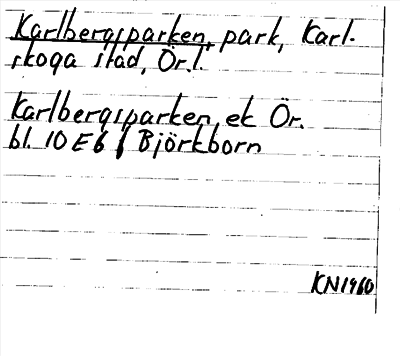 Karlbergsparken, park, Karl-
skoga stad, Ör.l.
Karlbergsparken, ek Ör.
bl. 10 E6 f Björkborn
KN1960